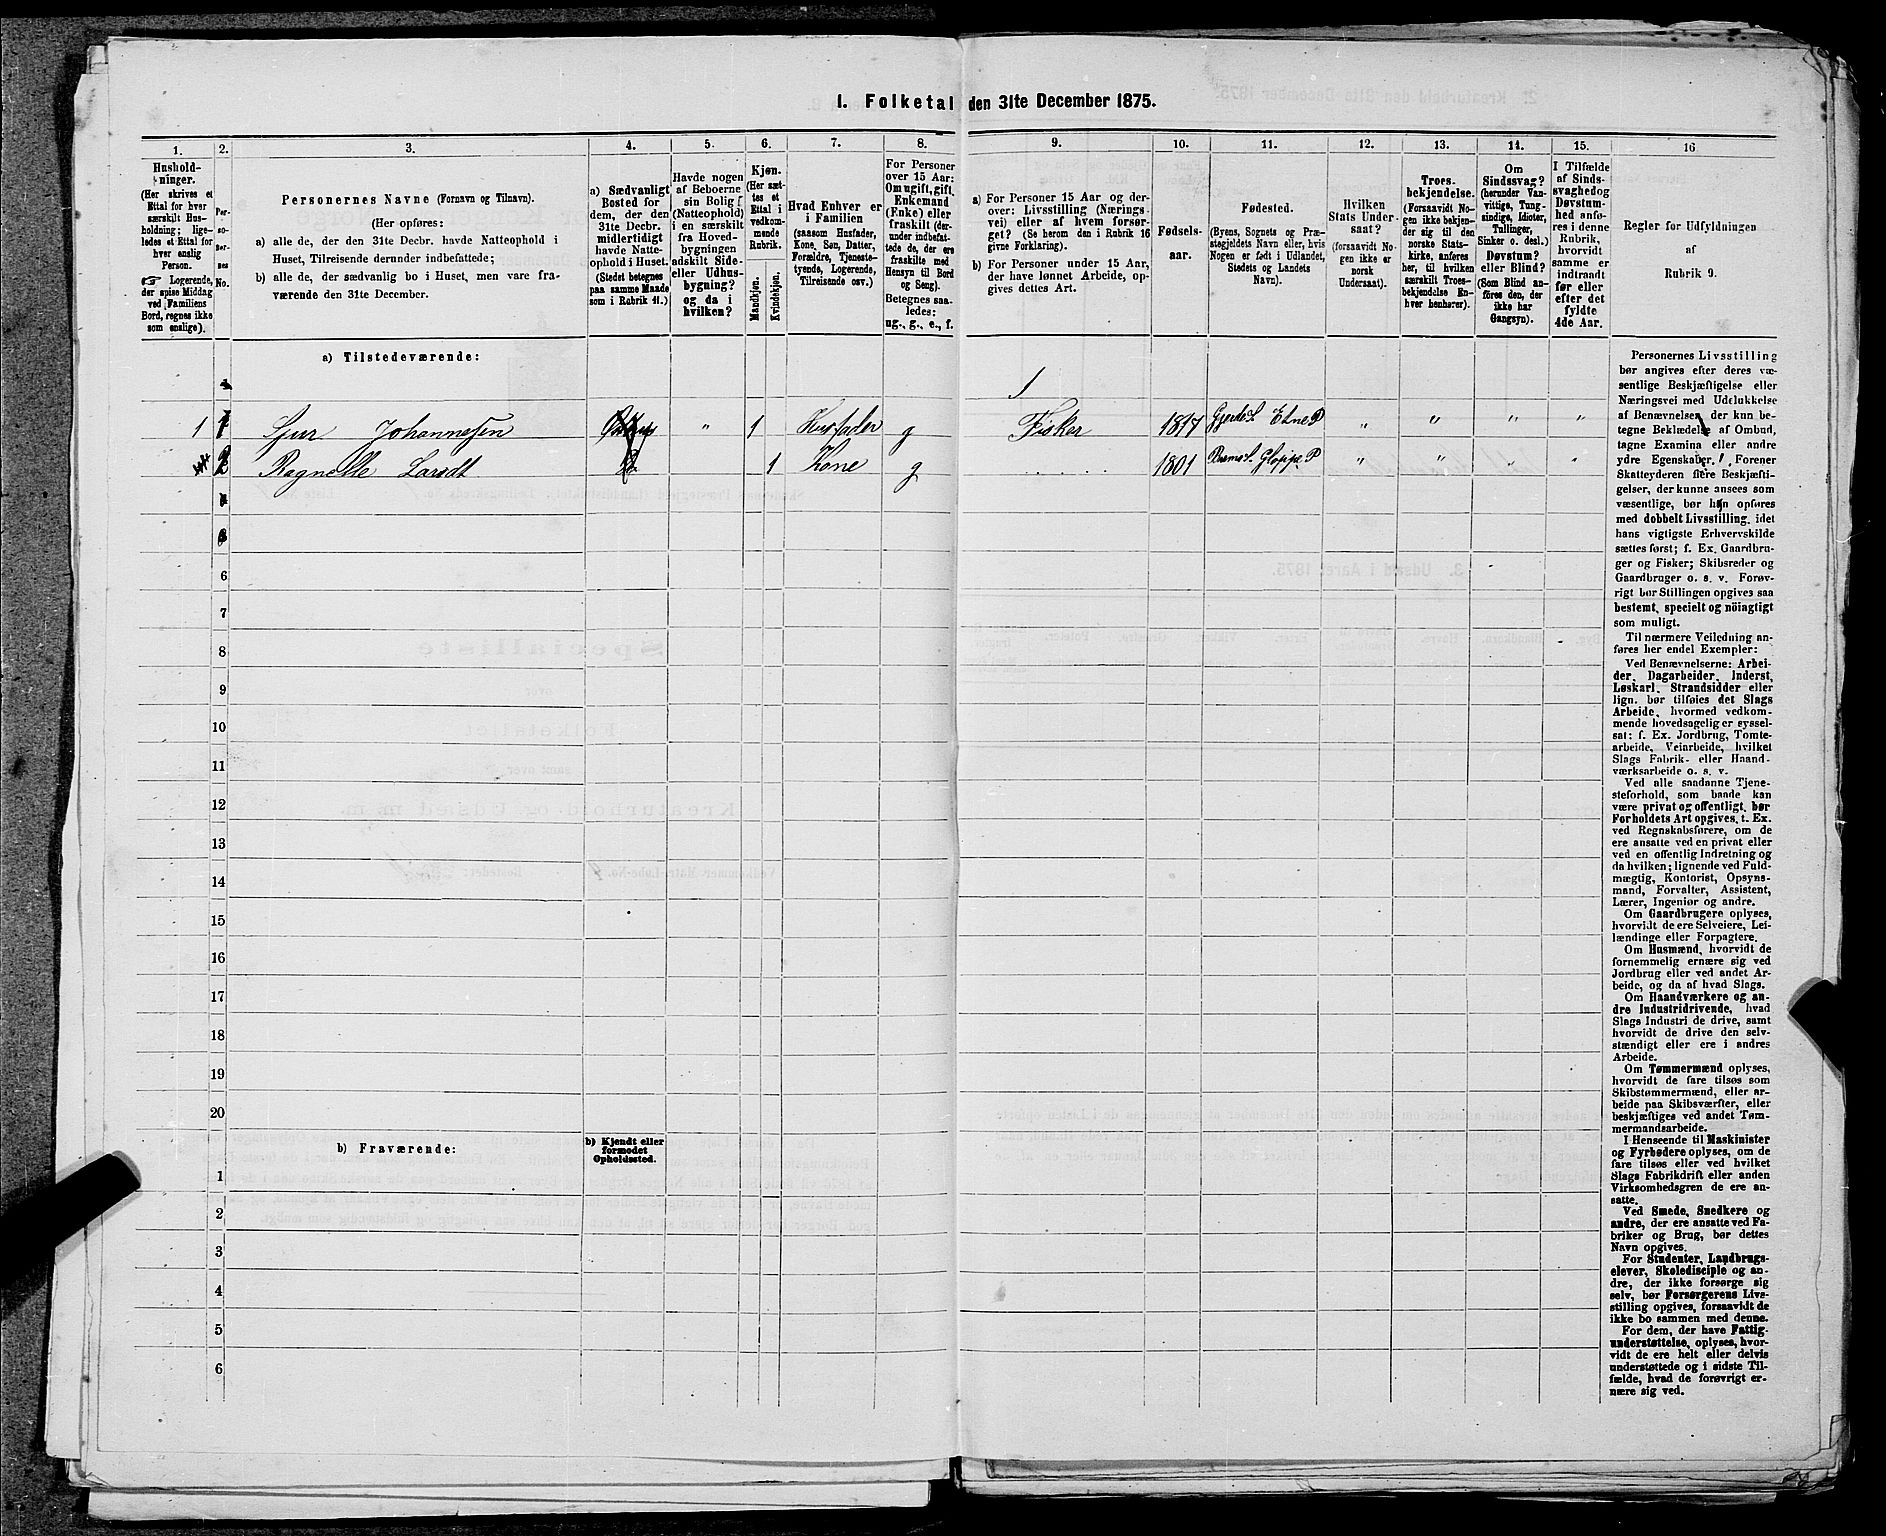 1. Folketal den 31te December 1875.
1.
2.
3.
4.
5.
6.
7.
8.
9.
10.
11.
12.
13.
14.
15.
16
Hushold-
ninger.
(Her skrives et
Ettal for hver
særskilt Hus-
holdning; lige-
ledes et Ettal for
hver enslig
Person.
☞ Logerende,
der spise Middag
ved Familiens
Bord, regnes ikke
som enslige).
Per-
so-
ner-
nes
No.
Personernes Navne (Fornavn og Tilnavn).
(Her opføres:
a) alle de, der den 31te Decbr. havde Natteophold i
Huset, Tilreisende derunder indbefattede;
b) alle de, der sædvanlig bo i Huset, men vare fra-
værende den 31te December.
a) Sædvanligt
Bosted for
dem, der den
31te Decbr.
midlertidigt
havde Natte-
ophold i Huset.
(Stedet betegnes
paa samme Maade
som i Rubrik 11.)
Havde nogen
af Beboerne
sin Bolig
(Natteophold)
i en særskilt
fra Hoved-
bygningen
adskilt Side-
eller Udhus-
bygning?
og da i
hvilken?
Kjøn.
(Her sæt-
tes et
Ettal i
vedkom-
mende
Rubrik.
Mandkjøn.
Kvindekjøn.
Hvad Enhver er
i Familien
(saasom Husfader,
Kone, Søn, Datter,
Forældre, Tjeneste-
tyende, Logerende,
Tilreisende osv.)
For Personer
over 15 Aar:
Om ugift, gift,
Enkemand
(Enke) eller
fraskilt (der-
under indbefat-
tede de, der ere
fraskilte med
Hensyn til Bord
og Seng).
Betegnes saa-
ledes:
ug., g., e., f.
a) For Personer 15 Aar og der-
over: Livsstilling (Nærings-
vei) eller af hvem forsør-
get? (Se herom den i Rubrik 16
givne Forklaring).
b) For Personer under 15 Aar,
der have lønnet Arbeide, op-
gives dettes Art.
Fødsels-
aar.
Fødested.
(Byens, Sognets og Præ-
stegjeldets Navn eller, hvis
Nogen er født i Udlandet,
Stedets og Landets
Navn).
Hvilken
Stats Under-
saat?
(forsaavidt No-
gen ikke er
norsk
Undersaat).
Troes-
bekjendelse.
(Forsaavidt No-
gen ikke bekjen-
der sig til den
norske Stats-
kirke, anføres
her, til hvilken
særskilt Troes-
bekjendelse En-
hver henhører).
Om
Sindssvag?
(herunder Van-
vittige, Tung-
sindige, Idioter,
Tullinger,
Sinker o. desl.)
Døvstum?
eller Blind?
(Som Blind an-
føres den, der
ikke har
Gangsyn).
I Tilfælde
af Sinds-
svaghed og
Døvstum-
hed anfø-
res i denne
Rubrik,
hvorvidt
samme er
indtraadt
før eller
efter det
fyldte
4de Aar.
Regler for Udfyldningen
af
Rubrik 9.
a) Tilstedeværende:
1
1 1 Sjur Johannesen " 1 Husfader g Fisker 1817 Etne P " " " "
2 Ragnelle Larsdt 1 Kone g 1801 Glopp. P " " " "
6
7
8
9
10
11
12
13
14
15
16
17
18
19
20
b) Fraværende:
b) Kjendt eller
formodet
Opholdssted.
1
2
3
4
5
6
Personernes Livsstilling
bør angives efter deres væ-
sentlige Beskjæftigelse eller
Næringsvei med Udelukkelse
af Benævnelser, der kun be-
tegne Beklædelse af Ombud,
tagne Examina eller andre
ydre Egenskaber. Forener
Skatteyderen flere Beskjæfti-
gelser, der kunne ansees som
væsentlige, bør han opføres
med dobbelt Livsstilling, idet
hans vigtigste Erhvervskilde
sættes først; f. Ex. Gaardbru-
ger og Fisker; Skibsreder og
Gaardbruger o. s. v. Forøv-
rigt bør Stillingen opgives saa
bestemt, specielt og nöiagtigt
som muligt.
Til nærmere Veiledning an-
føres her endel Exempler:
Ved Benævnelserne: Arbei-
der, Dagarbeider, Inderst,
Løskarl, Strandsidder eller
lign. bør tilføies det Slags
Arbeide, hvormed vedkom-
mende hovedsagelig er syssel-
sat: f. Ex. Jordbrug, Tomte-
arbeide, Veiarbeide, hvilket
Slags Fabrik- eller Haand-
værksarbeide o. s. v.
Ved alle saadanne Tjene-
steforhold, som baade kan
være privat og offentligt, bør
Forholdets Art opgives, t. Ex.
ved Regnskabsførere, om de
ere ansatte ved en privat eller
ved en offentlig Indretning og
da hvilken; lignende ved Fuld-
mægtig, Kontorist, Opsyns-
mand, Forvalter, Assistent,
Lærer, Ingeniør og andre.
Om Gaardbrugere oplyses,
hvorvidt de ere Selveiere, Lei-
lændinge eller Forpagtere.
Om Husmænd, hvorvidt de
fornemmelig ernære sig ved
Jordbrug eller ved andet Ar-
beide, og da af hvad Slags.
Om Haandværkere og an-
dre Industridrivende, hvad
Slags Industri de drive, samt
hvorvidt de drive den selv-
stændigt eller ere i andres
Arbeide.
Om Tømmermænd oplyses,
hvorvidt de fare tilsøs som
Skibstømmermænd, eller ar-
beide paa Skibsværfter, eller
beskjæftiges ved andet Tøm-
mermandsarbeide.
I Henseende til Maskinister
og Fyrbødere oplyses, om de
fare tilsøs eller ved hvilket
Slags Fabrikdrift eller anden
Virksomhedsgren de ere an-
satte.
Ved Smede, Snedkere og
andre, der ere ansatte ved Fa-
briker og Brug, bør dettes
Navn opgives.
For Studenter, Landbrugs-
elever, Skoledisciple og an-
dre, der ikke forsørge sig
selv, bør Forsørgerens Livs-
stilling opgives, forsaavidt de
ikke bo sammen med denne.
For dem, der have Fattig-
understøttelse, oplyses, hvor-
vidt de ere helt eller delvis
understøttede og i sidste Til-
fælde, hvad de forøvrigt er-
nære sig ved.